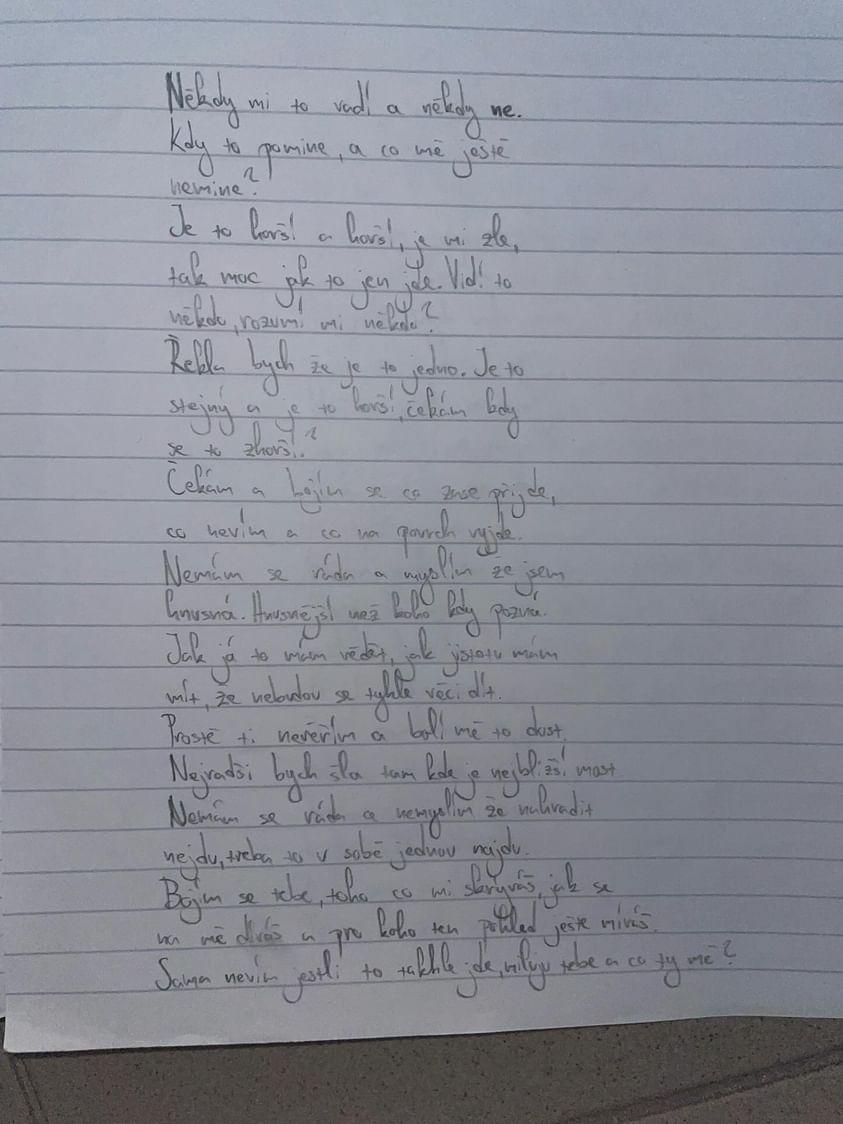 Někdy mi to vadí a někdy ne.
Kdy to pomine, a co mě ještě
nemine?
Je to horší a horší, je mi zle,
tak moc jak to jen jde. Vidí to
někdo, rozumí mi někdo?
Řekla bych že je to jedno. Je to
stejný a je to horší, čekám kdy
se to zhorší.?
Čekám a bojím se co zase příjde,
co nevím a co na povrch vyjde.
Nemám se ráda a myslím že jsem
hnusná. Hnusnější než koho kdy pozná.
Jak já to mám vědět, jak jistotu mám
mít, že nebudou se tyhle věci dít.
Prostě ti nevěřím a bolí mě to dost.
Nejradši bych šla tam kde je nejbližší most
Nemám se ráda a nemyslím že nahradit
nejdu, třeba to v sobě jednou najdu.
Bojím se tebe, toho co mi skrýváš, jak se
na mě díváš a pro koho ten pohled ještě míváš.
Sama nevím jestli to takhle jde, miluju tebe a co ty mě?